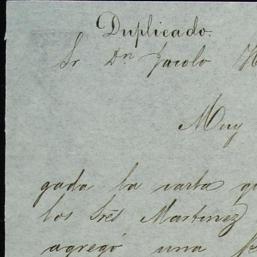 Duplicado.
Sr Dn Jacobo
Muy
gada la carta
los Sres Martinez
agregó una